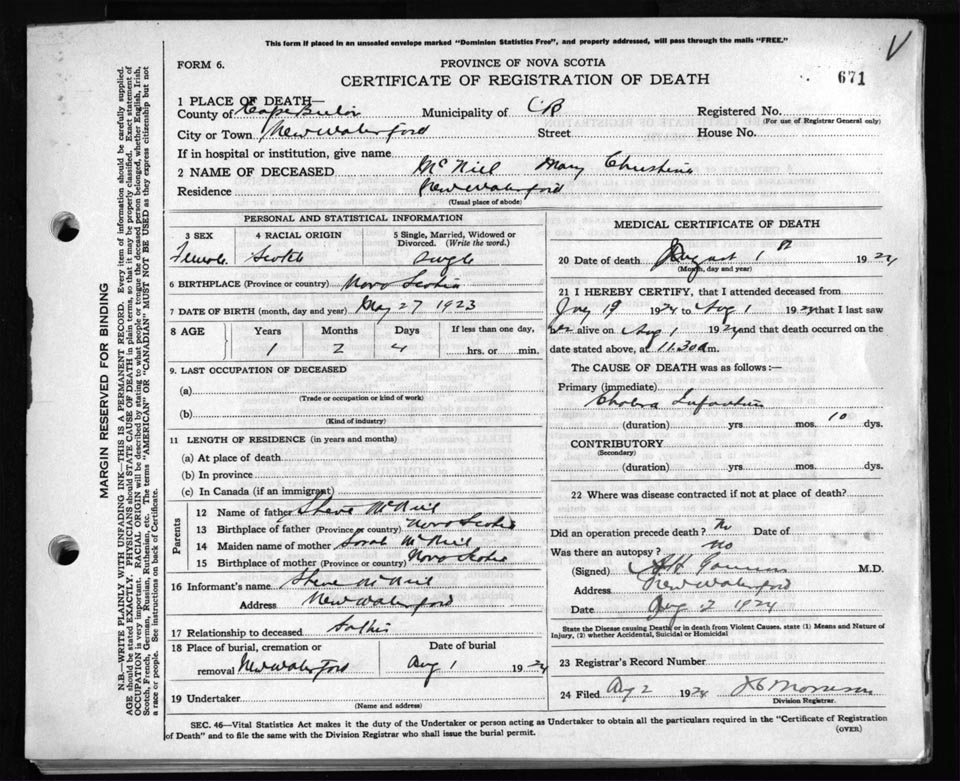 This form if placed in an unsealed envelope marked "Dominion Statistics Free", and properly addressed, will pass through the mails "FREE."
V
FORM 6.
PROVINCE OF NOVA SCOTIA
CERTIFICATE OF REGISTRATION OF DEATH
671
1 PLACE OF DEATH—
County of Cape Breton Municipality of CB Registered No.
(For use of Registrar General only)
City or Town New Waterford Street House No.
If in hospital or institution, give name
2 NAME OF DECEASED McNiel Mary Christina
Residence New Waterford
(Usual place of abode)
PERSONAL AND STATISTICAL INFORMATION
3 SEX 4 RACIAL ORIGIN 5 Single, Married, Widowed or Divorced. (Write the word.)
Female Scotch Single
6 BIRTHPLACE (Province or country) Nova Scotia
7 DATE OF BIRTH (month, day and year) May 27 1923
8 AGE Years Months Days If less than one day,
1 2 4 hrs. or min.
9. LAST OCCUPATION OF DECEASED
(a)
(Trade or occupation or kind of work)
(b)
(Kind of industry)
11 LENGTH OF RESIDENCE (in years and months)
(a) At place of death
(b) In province
(c) In Canada (if an immigrant)
Parents
12 Name of father Steve McNeil
13 Birthplace of father (Province or country) Nova Scotia
14 Maiden name of mother Sarah McNeil
15 Birthplace of mother (Province or country) Nova Scotia
16 Informant's name Steve McNeil
Address New Waterford
17 Relationship to deceased Father
18 Place of burial, cremation or removal New Waterford
Date of burial
Aug 1 1924
19 Undertaker
(Name and address)
MEDICAL CERTIFICATE OF DEATH
20 Date of death August 1 1924
(Month, day and year)
21 I HEREBY CERTIFY, that I attended deceased from
19 1924 to Aug 1 1924 that I last saw
her alive on Aug 1 1924 and that death occurred on
date stated above, at 11.30 a m.
The CAUSE OF DEATH was as follows:—
Primary (immediate)
Cholera Infantum
(duration) yrs. mos. 10 dys.
CONTRIBUTORY
(Secondary)
(duration) yrs. mos. dys.
22 Where was disease contracted if not at place of death?
Did an operation precede death? No Date of
Was there an autopsy? no
(Signed) M.D.
Address New Waterford
Date Aug 2 1924
State the Disease causing Death, or in death from Violent Causes, state (1) Means and Nature of Injury, (2) whether Accidental, Suicidal or Homicidal
23 Registrar's Record Number
24 Filed Aug 2 1924 Morrison
Division Registrar.
SEC. 46—Vital Statistics Act makes it the duty of the Undertaker or person acting as Undertaker to obtain all the particulars required in the "Certificate of Registration
of Death" and to file the same with the Division Registrar who shall issue the burial permit.
(OVER)
MARGIN RESERVED FOR BINDING
N.B.—WRITE PLAINLY WITH UNFADING INK—THIS IS A PERMANENT RECORD. Every item of information should be carefully supplied.
AGE should be stated EXACTLY. PHYSICIANS should STATE CAUSE OF DEATH in plain terms, so that it may be properly classified. Exact statement of
OCCUPATION is very important. RACIAL ORIGIN will be described by stating to what people or tongue the deceased person belonged, whether English, Irish,
Scotch, French, German, Russian, Ruthenian, etc. The terms "AMERICAN" OR "CANADIAN" MUST NOT BE USED as they express citizenship but not
a race or people. See instructions on back of Certificate.